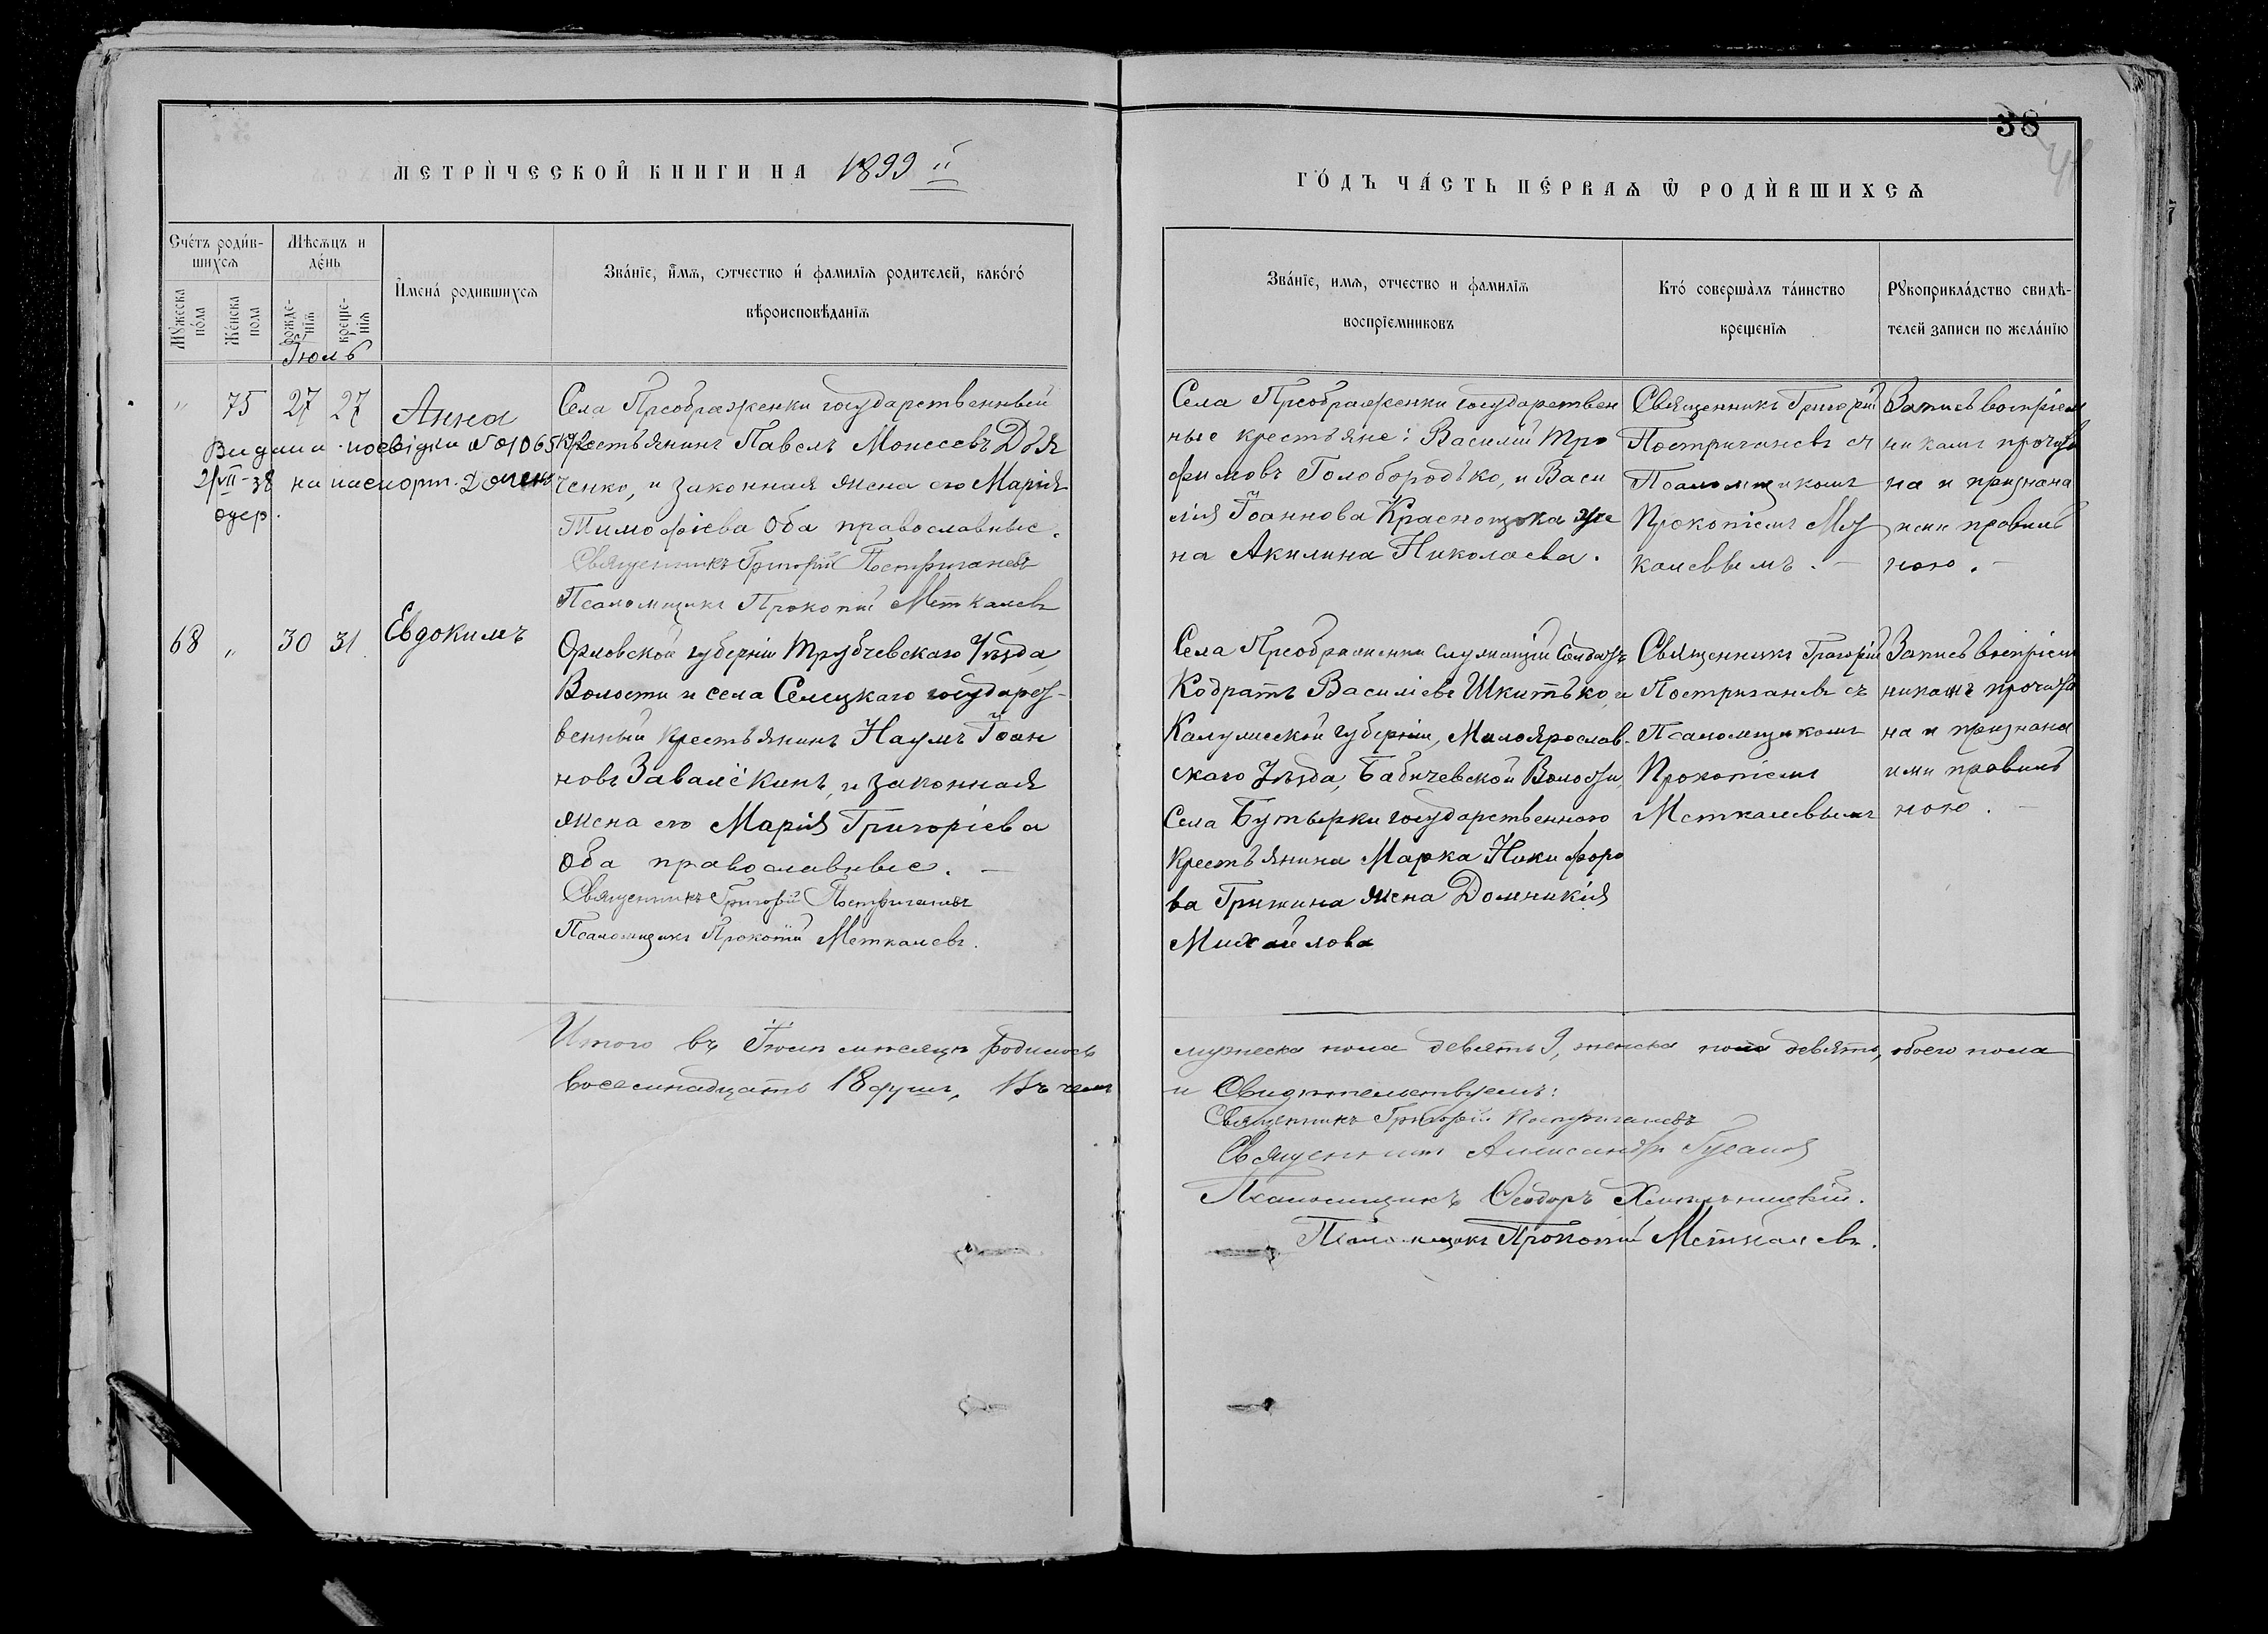 38
МЕТРИ́ЧЕСКОЙ КНИГИ НА 1899 й
ГО́ДЪ ЧА́СТЬ ПЕ́РВАѦ Ѿ РОДИ́ВШИХСѦ
Сче́тъ роди́в-
шихсѧ
Мѣсѧцъ и
де́нь
Мꙋжеска
по́ла
Же́нска
пола
рожде-
нїѧ
креще-
нїѧ
И҆мена́ родившихсѧ
Зва́нїе, и҆́мѧ, ѻтчество и҆ фамилїѧ родителей, како́го́
вѣроисповѣданїѧ
Зва́нїе, имѧ, отчество и фамилїѧ
воспрїемниковъ
Кто́ совершалъ та́инство
крещенїѧ
Рꙋкоприкла́дство свидѣ-
телей записи по жела́нїю
Іюль
" 75 27 27 Анна
Видана посвідка № 01065
2/VII-38 на паспорт.
одер.
Села Преображенки государственный
крестьянинъ Павелъ Моисеевъ Дья
ченко, и законная жена его Марія
Тимофіева Оба православные.
Священникъ Григорій Постригановъ
Псаломщикъ Прокопій Меткалевъ
Села Преображенки государствен
ные крестьяне: Василій Тро
фимовъ Голобородько, и Васи
лія Іоаннова Краснощока же
на Акилина Николаева.
Священникъ Григорій
Постригановъ съ
Псаломщикомъ
Прокопіемъ Мет
калевымъ.
Запись воспріем
никамъ прочита
на и признана
ими правиль
ною.
68 " 30 31 Евдокимъ
Орловской губерніи Трубчевскаго Уѣзда,
Волости и села Селецкаго государст-
венный крестьянинъ Наумъ Іоан
новъ Завалёкинъ, и законная
жена его Марія Григоріева
Оба православные.
Священникъ Григорій Постригановъ
Псаломщикъ Прокопій Меткалевъ.
Села Преображенки служащій Солдатъ
Кодратъ Василіевъ Шкитько, и
Калужской губерніи, Малоярослав-
скаго Уѣзда, Бабичевской Волости,
Села Бутырки государственного
крестьянина Марка Никифоро
ва Гришина жена Домникія
Михайлова
Священникъ Григорій
Постригановъ съ
Псаломщикомъ
Прокопіемъ
Меткалевымъ
Запись воспріем
никамъ прочита
на и признана
ими правиль
ною.
Итого въ Іюлѣ мѣсяцѣ родилось
мужеска пола девять 9, женска пола девять, обоего пола
восемнадцать 18 душъ, Въ чемъ
и Свидѣтельствуемъ:
Священникъ Григорій Постригановъ
Священникъ Александръ
Псаломщикъ Ѳеодоръ Хмельницкій.
Псаломщикъ Прокопій Меткалевъ.